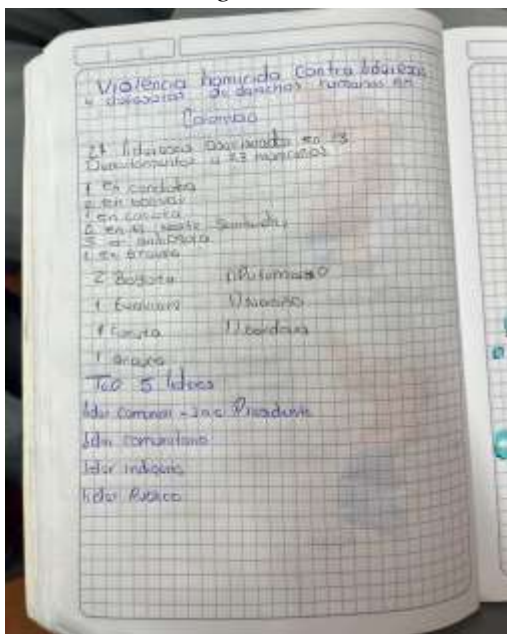 Violencia homicida contra lideresas
y defensores de derechos humanos en
Colombia
21 lideresas asesinadas en 13
Departamentos y 23 municipios
1 en cordoba
2 en
1 en cauca
2 en el Norte Santander
5 en antioquia
1 en arauca
2 Bogota 1) Putumayo
1 1) nariño
1 1) cordoba
1 arauca
Top 5 lideres
lider comunal - Presidente
lider comunitario
lider indigena
lider Publico